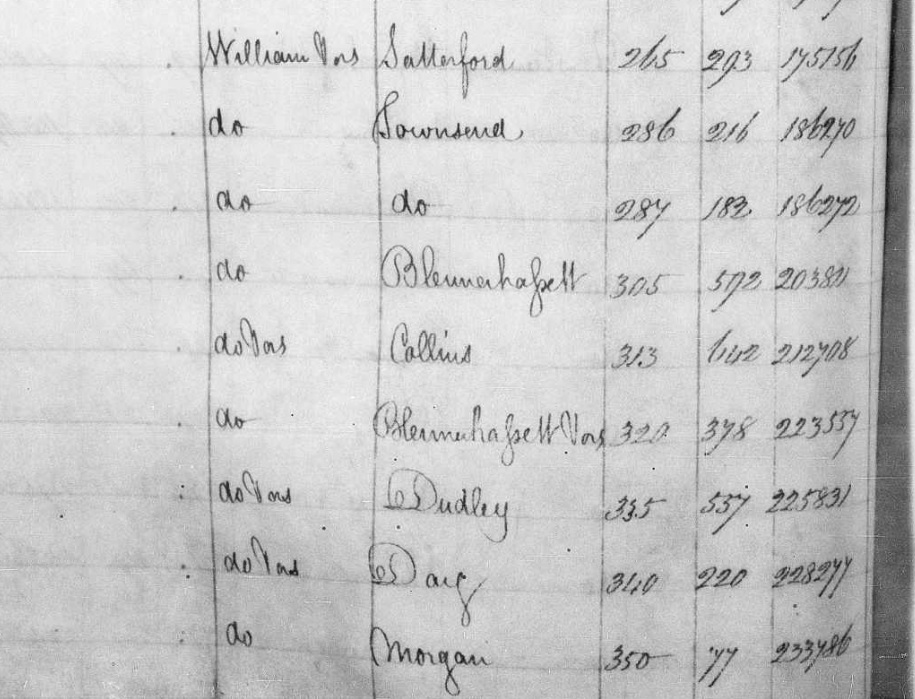 William & ors Satterford 265 293 175156
do Townsend 286 216 186270
do do 287 182 186272
do Blennerhassett 305 592 203821
do & ors Collins 313 642 212708
do Blennerhassett & ors 320 378 223537
do & ors Dudley 335 537 225831
do & ors 340 220 228277
do Morgan 350 77 233786